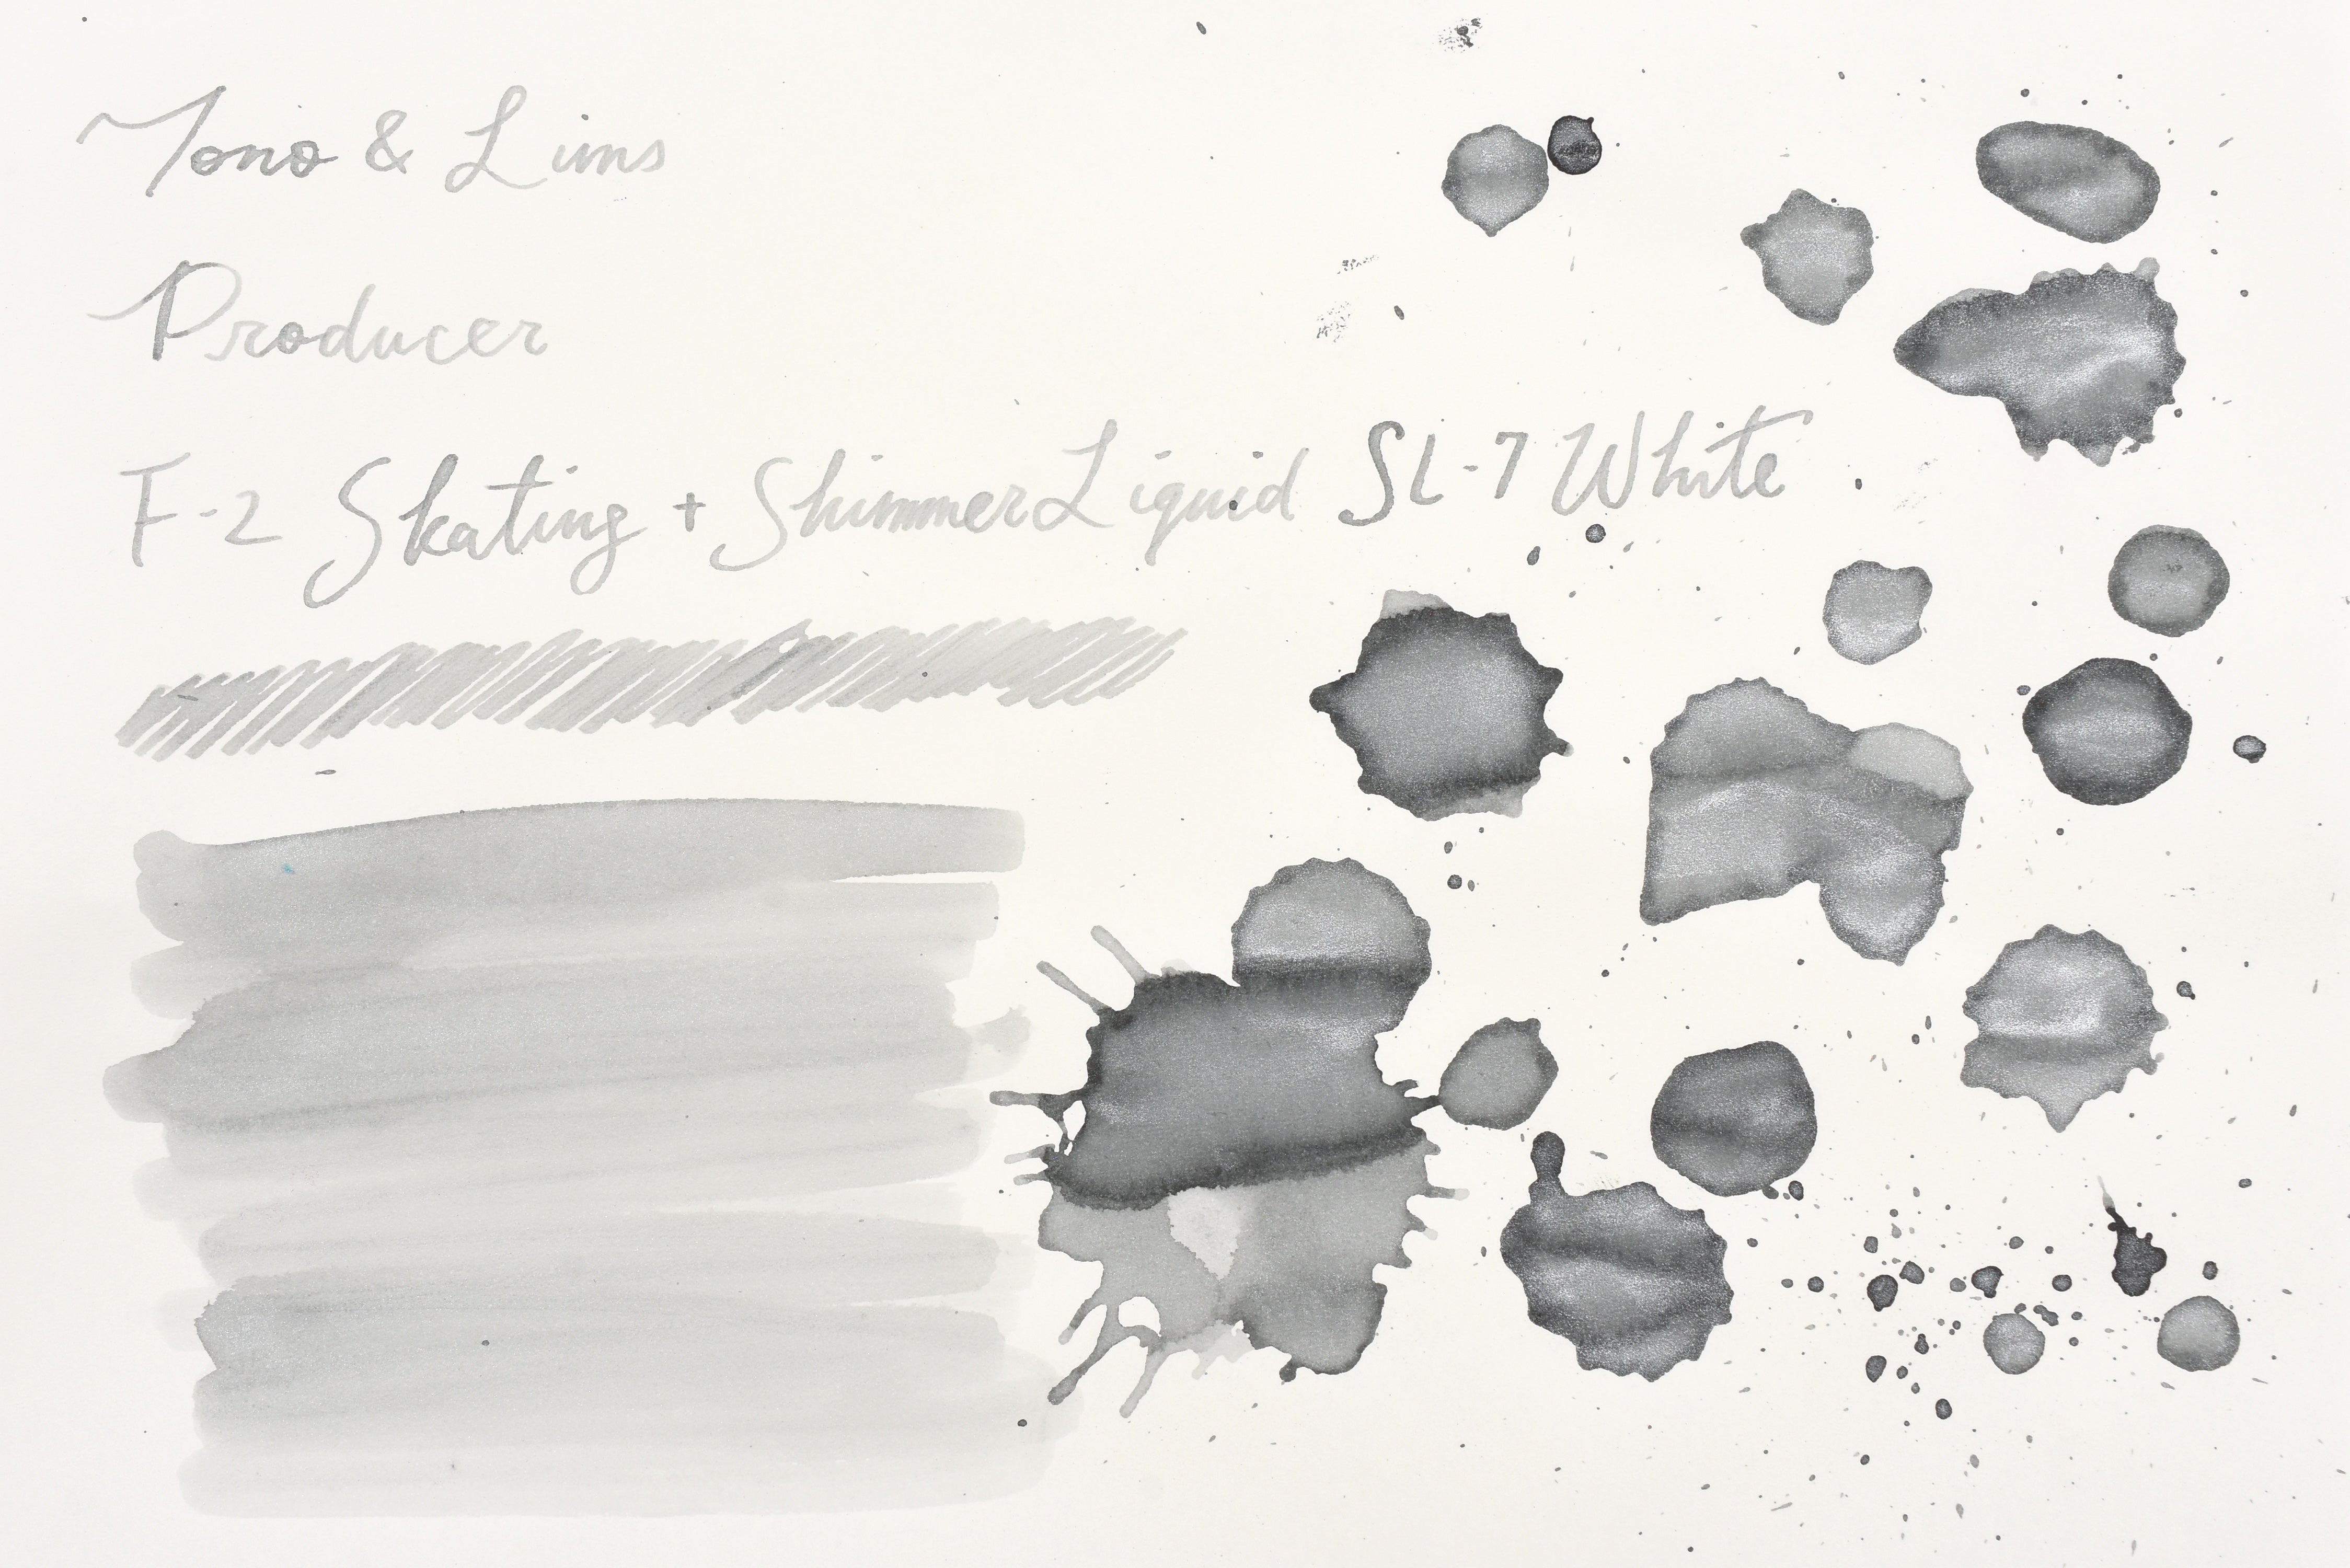 Tono & Lims
Producer
F-2 Skating + Shimmer Liquid SL-7 White